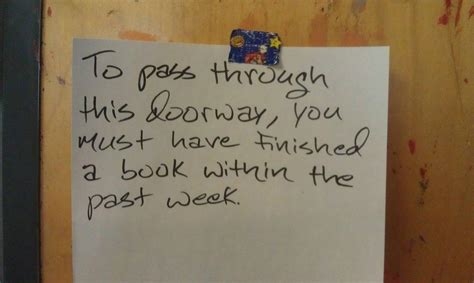 To pass through
this doorway, you
must have finished
a book within the
past week.